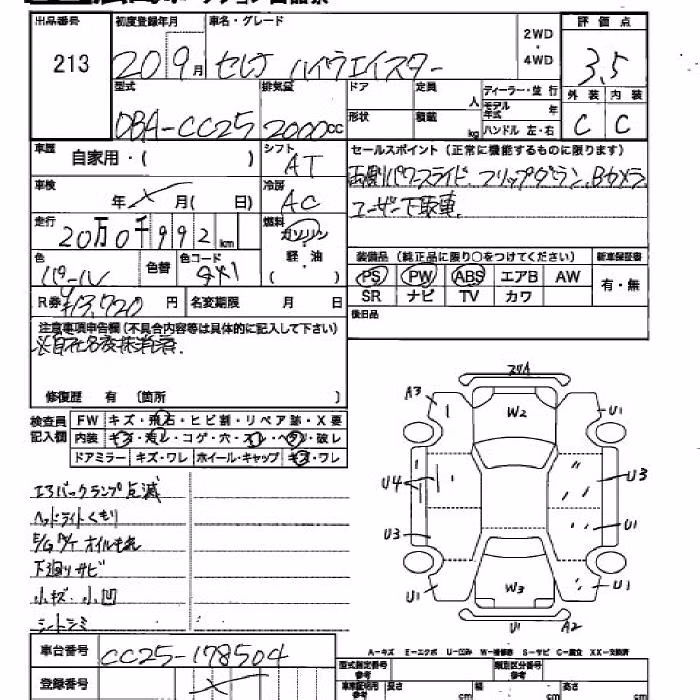 出品番号 初度登録年月 車名・グレード 2WD・4WD 評価点
213 20 9月 セレナ ハイウエイスター 3.5
型式 排気量 ドア 定員 人 ディーラー・並行 外装 内装
DBA-CC25 2000cc 形状 積載 kg モデル年式 年 C C
ハンドル 左・右
車歴 自家用・( ) シフト AT セールスポイント(正常に機能するものに限ります)
両側パワースライド、フリップダウン、Bカメラ
車検 年 月( 日) 冷房 AC ユーザー下取車.
走行 20万0千992km 燃料 ガソリン・軽油
装備品(純正品に限り○をつけてください) 新車保証書
色 パール 色替 色コード QX1 PS PW ABS エアB AW 有・無
R券 ¥13,720円 名変期限 月 日 SR ナビ TV カワ
後日品
注意事項申告欄(不具合内容等は具体的に記入して下さい)
※自社名変抹消済.
修復歴 有 〔箇所 〕
検査員記入欄 FW キズ・飛石・ヒビ割・リペア跡・X要
内装 キズ・汚レ・コゲ・穴・スレ・ヘタリ・破レ
ドアミラー キズ・ワレ ホイール・キャップ キズ・ワレ
エアバックランプ点滅
ヘッドライトくもり
E/G M/T オイルもれ
下廻りサビ
小キズ 小凹
シートシミ
A3 W2 U1
U4 U3
U3 U1
U1 W3 U1
U1 A2
車台番号 CC25-178504
登録番号
A-キズ E-エクボ U-凹み W-補修跡 S-サビ C-腐食 XX-交換済
型式指定番号 参考 類別区分番号 参考
長さ cm 幅 cm 高さ cm